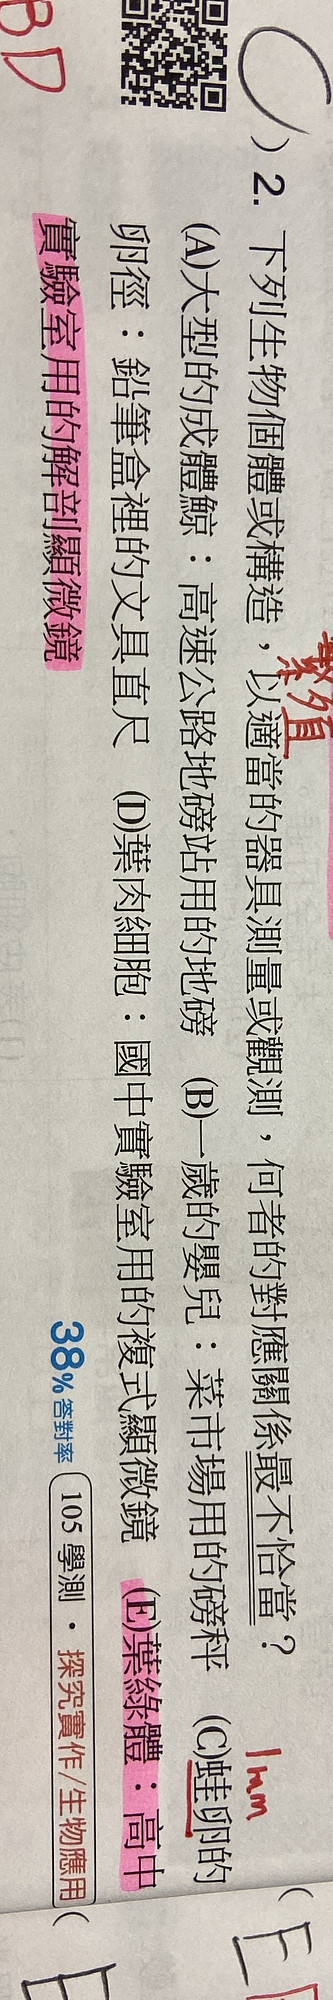 BD
繁殖
) 2. 下列生物個體或構造，以適當的器具測量或觀測，何者的對應關係最不恰當？
1mm
(A)大型的成體鯨：高速公路地磅站用的地磅 (B)一歲的嬰兒：菜市場用的磅秤 (C)蛙卵的
卵徑：鉛筆盒裡的文具直尺 (D)葉肉細胞：國中實驗室用的複式顯微鏡 (E)葉綠體：高中
實驗室用的解剖顯微鏡
38% 答對率 105 學測・探究實作/生物應用
( E
(